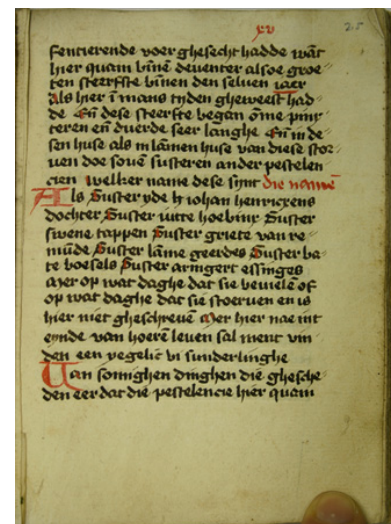 xv 25
sentierende voer ghesecht hadde wāt
hier quam bīnē deventer alsoe groe
ten steerfste bīnen den selven iaer
als hier ī mans tyden gheweest had
de Eñ dese steerfte began ōme pinx
teren eñ duerde seer langhe Eñ in de
sen huse als in lāmen huse van diese stor
ven doe sovē susteren ander pestelen
cien welker name dese sijnt die namē
Als Suster yde h iohan henricxens
dochter Suster iutte hoebinx Suster
swene tappen Suster griete van re
mūde Suster lāme geerdes Suster ba
te boesels Suster armgert essinges
Mer op wat daghe dat sie bevielē of
op wat daghe dat sie stoerven en is
hier niet ghescrevē Mer hier nae int
eynde van hoerē leven sal ment vin
den een yegelic bi sunderlinghe
Van sonnighen dinghen die ghesche
den eer dat die pestelencie hier quam